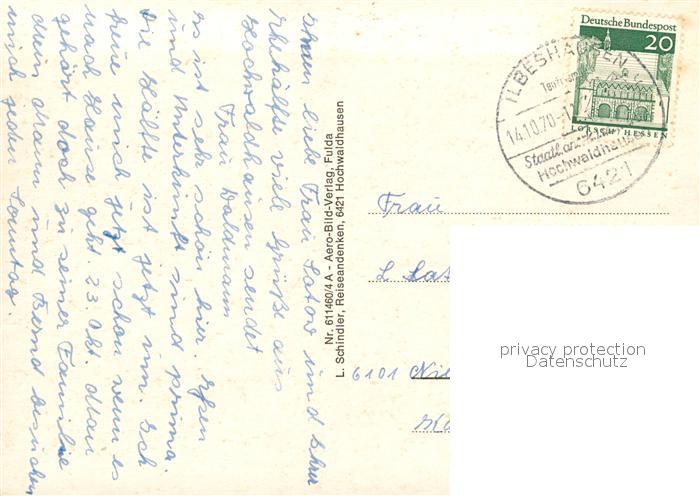 Ihnen liebe Frau Latow und Ihrer
Ehehälfte viele Grüße aus
Hochwaldhausen sendet
Frau Waldmann
es ist sehr schön hier. Essen
und Unterkunft sind prima.
Die Hälfte ist jetzt um. Ich
freue mich jetzt schon wenn es
nach Hause geht. 23. Okt. Man
gehört doch zu seiner Familie
mein Mann und Bernd besuchen
mich jeden Sonntag.
Nr. 611460/4 A - Aero-Bild-Verlag, Fulda
L. Schindler, Reiseandenken, 6421 Hochwaldhausen
Deutsche Bundespost
20
LORSCH/HESSEN
ILBESHAUSEN
14.10.70
Staatl. an
Hochwaldhausen
6421
Frau
L.
6101
privacy protection
Datenschutz